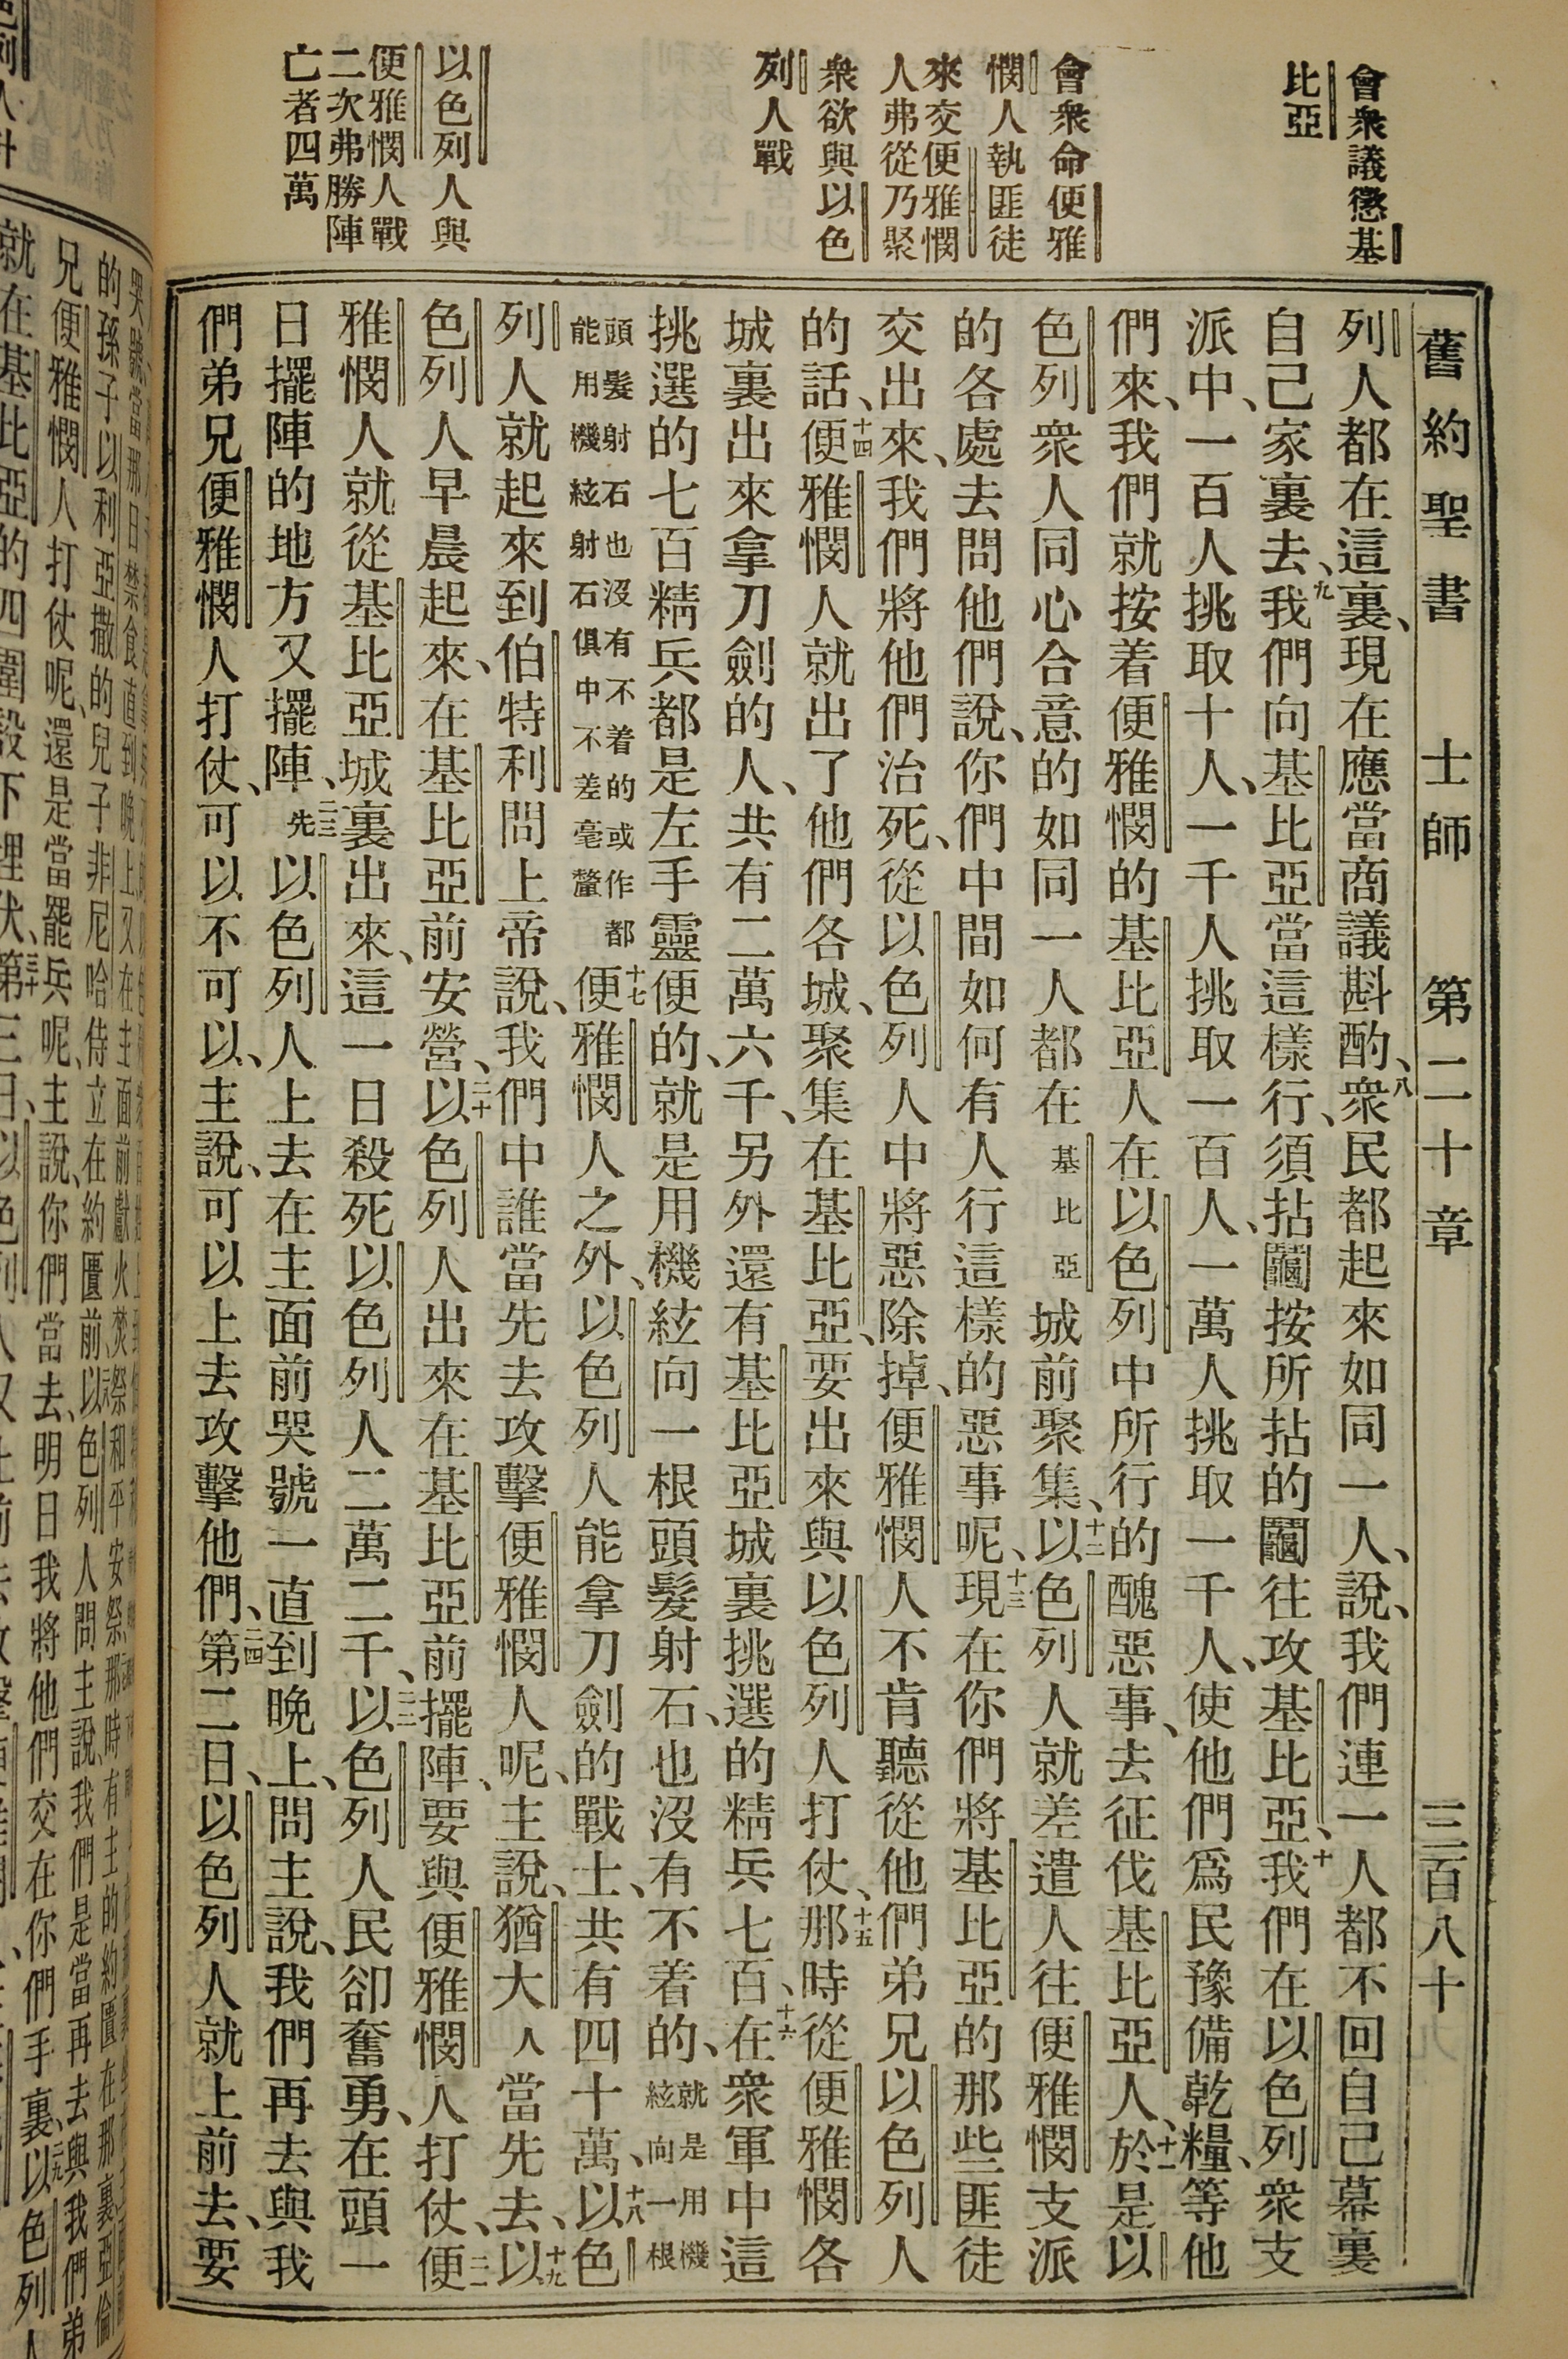 會衆議懲基
比亞
會衆命便雅
憫人執匪徒
來交便雅憫
人弗從乃聚
衆欲與以色
列人戰
以色列人與
便雅憫人戰
二次弗勝陣
亡者四萬
舊約聖書 士師 第二十章 三百八十
列人都在這裏、現在應當商議斟酌、八衆民都起來如同一人、說、我們連一人都不回自己幕裏
自己家裏去、九我們向基比亞當這樣行、須拈鬮按所拈的鬮往攻基比亞、十我們在以色列衆支
派中、一百人挑取十人、一千人挑取一百人、一萬人挑取一千人、使他們爲民豫備乾糧、等他
們來、我們就按着便雅憫的基比亞人在以色列中所行的醜惡事、去征伐基比亞人、十一於是以
色列衆人同心合意的如同一人都在基比亞城前聚集、十二以色列人就差遣人往便雅憫支派
的各處去問他們說、你們中間如何有人行這樣的惡事呢、十三現在你們將基比亞的那些匪徒
交出來、我們將他們治死、從以色列人中將惡除掉、便雅憫人不肯聽從他們弟兄以色列人
的話、十四便雅憫人就出了他們各城、聚集在基比亞、要出來與以色列人打仗、十五那時從便雅憫各
城裏出來拿刀劍的人、共有二萬六千、另外還有基比亞城裏挑選的精兵七百、十六在衆軍中這
挑選的七百精兵都是左手靈便的、就是用機絃向一根頭髮射石、也沒有不着的、就是用機絃向一根
頭髮射石也沒有不着的或作都能用機絃射石俱中不差毫釐十七便雅憫人之外、以色列人能拿刀劍的戰士、共有四十萬、十八以色
列人就起來到伯特利問上帝說、我們中誰當先去攻擊便雅憫人呢、主說、猶大人當先去、十九以
色列人早晨起來、在基比亞前安營、二十以色列人出來在基比亞前擺陣、要與便雅憫人打仗、二一便
雅憫人就從基比亞城裏出來、這一日殺死以色列人二萬二千、二二以色列人民卻奮勇、在頭一
日擺陣的地方又擺陣、二三先以色列人上去在主面前哭號一直到晚上、問主說、我們再去與我
們弟兄便雅憫人打仗、可以不可以、主說、可以上去攻擊他們、二四第二日、以色列人就上前去、要